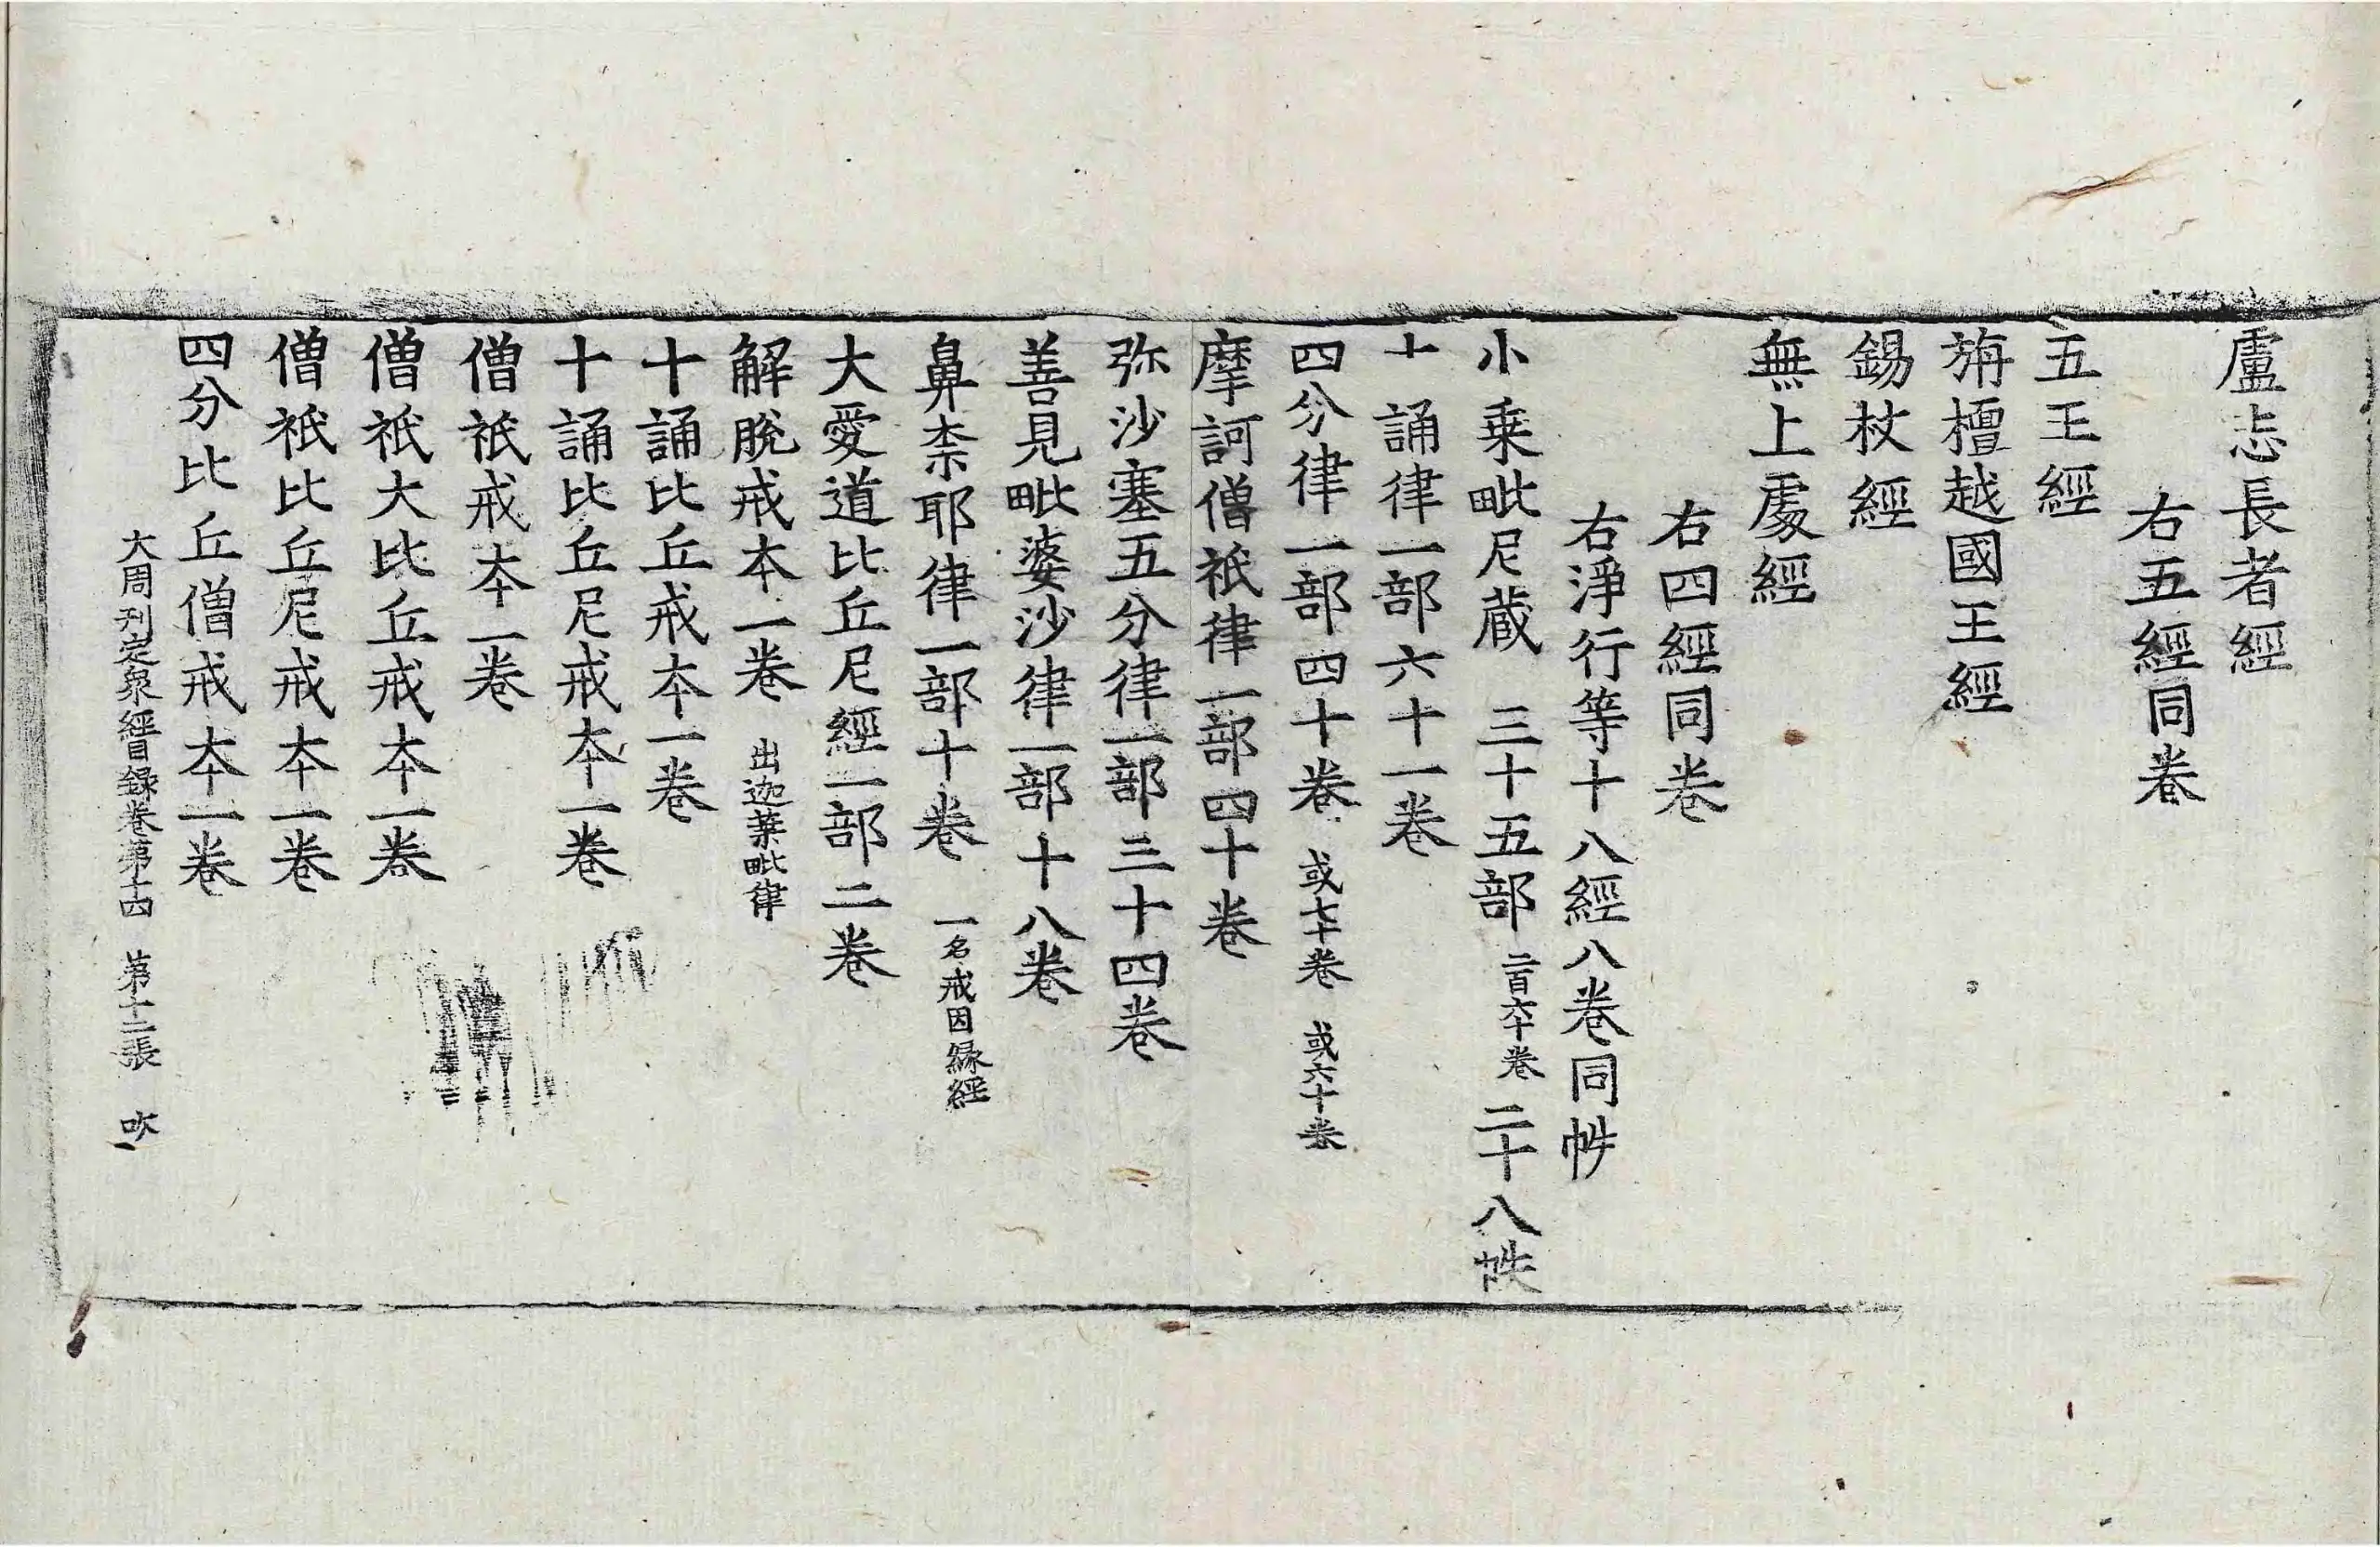 盧志長者經
右五經同卷
五王經
旃檀越國王經
錫杖經
無上處經
右四經同卷
右淨行等十八經八卷同帙
小乗毗尼蔵 三十五部 二百六十卷 二十八帙
十誦律一部六十一卷
四分律一部四十卷 或七十卷 或六十卷
摩訶僧祇律一部四十卷
弥沙塞五分律一部三十四卷
善見毗婆沙律一部十八卷
鼻柰耶律一部十卷 一名戒因縁經
大愛道比丘尼經一部二卷
解脫戒夲一卷 出迦葉毗律
十誦比丘戒夲一卷
十誦比丘尼戒夲一卷
僧祇戒夲一卷
僧祇大比丘戒夲一卷
僧祇比丘尼戒夲一卷
四分比丘僧戒夲一卷
大周刊定衆經目録卷第十四 第十二張 吹